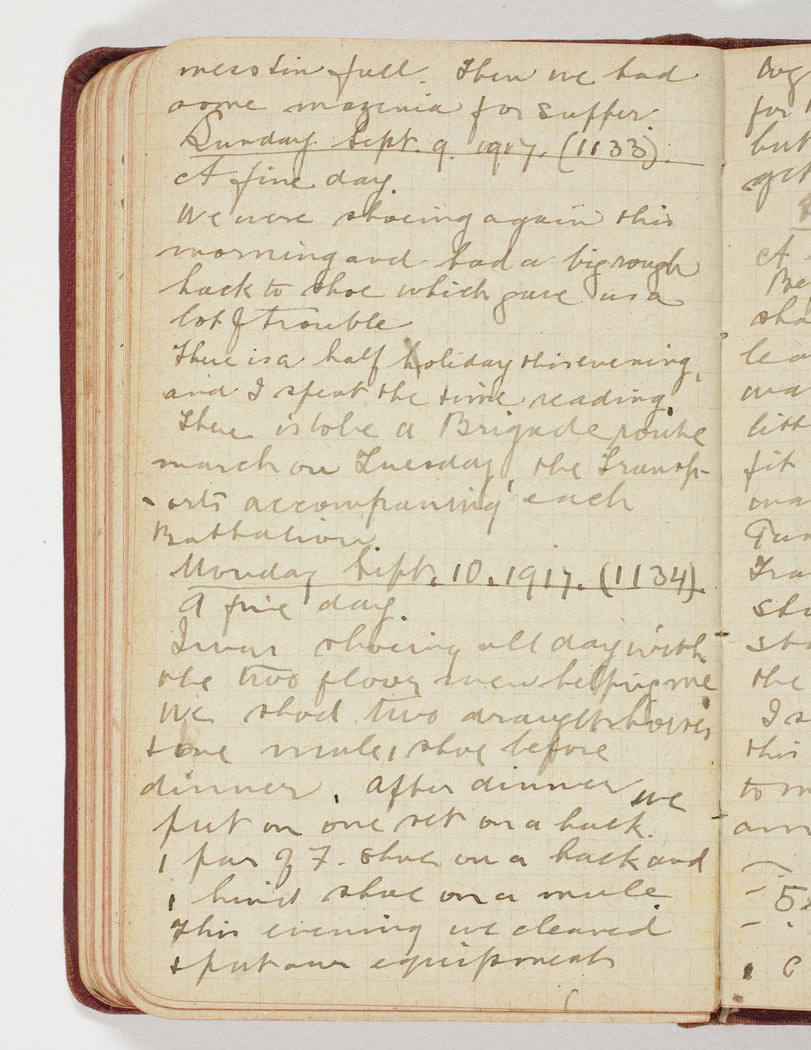 mess tin full. Then we had
some mazenia for supper.
Sunday Sept. 9. 1917. (1133).
A fine day.
We were shoeing again this
morning and had a big rough
hack to shoe which gave us a
lot of trouble
There is a half holiday this evening,
and I spent the time reading.
There is to be a Brigade route
march on Tuesday, the Transp-
orts accompaning each
Battalion
Monday Sept. 10. 1917. (1134).
A fine day.
I was shoeing all day with
the two floor men helping me
We shod two draught horses
+ one mule, 1 shoe before
dinner. After dinner we
put on one set on a hack.
1 pair of F. shoes on a hack and
1 hind shoe on a mule.
This evening we cleaned
+ put our equipments
aug
for
but
get
A
sha
lea
wa
litt
fit
Tra
sto
the
I s
this
to m
5